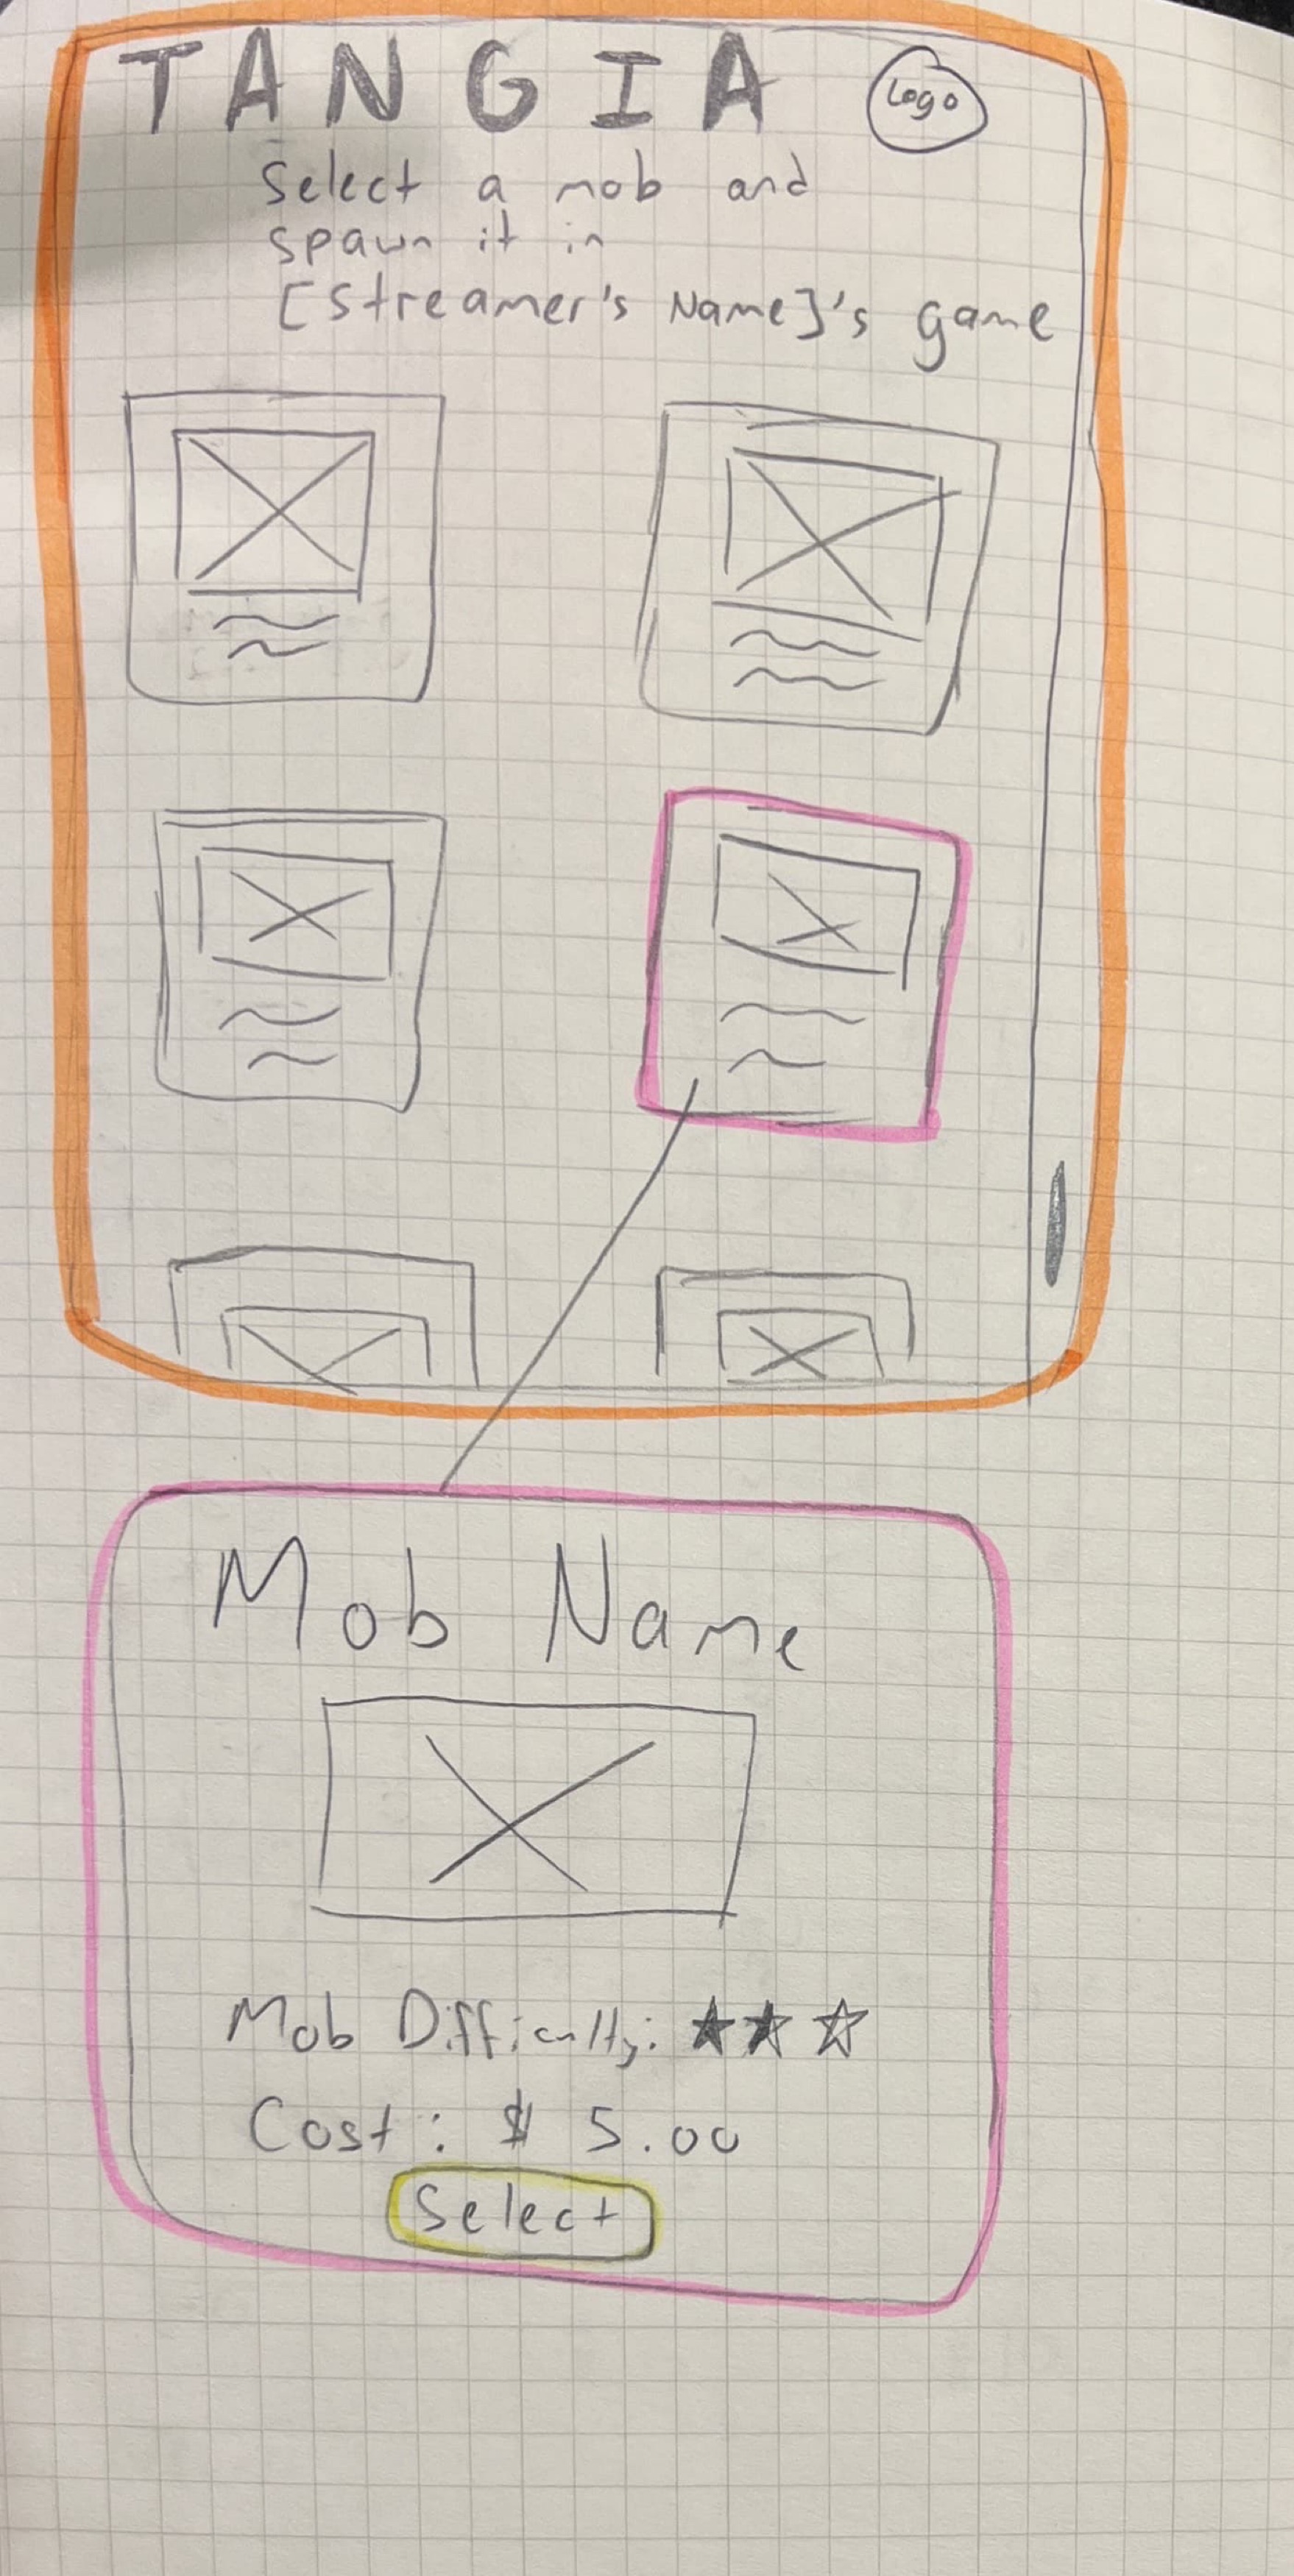 TANGIA
Logo
Select a mob and
spawn it in
[Streamer's Name]'s game
Mob Name
Mob Difficulty: ★ ★ ☆
Cost: $ 5.00
Select